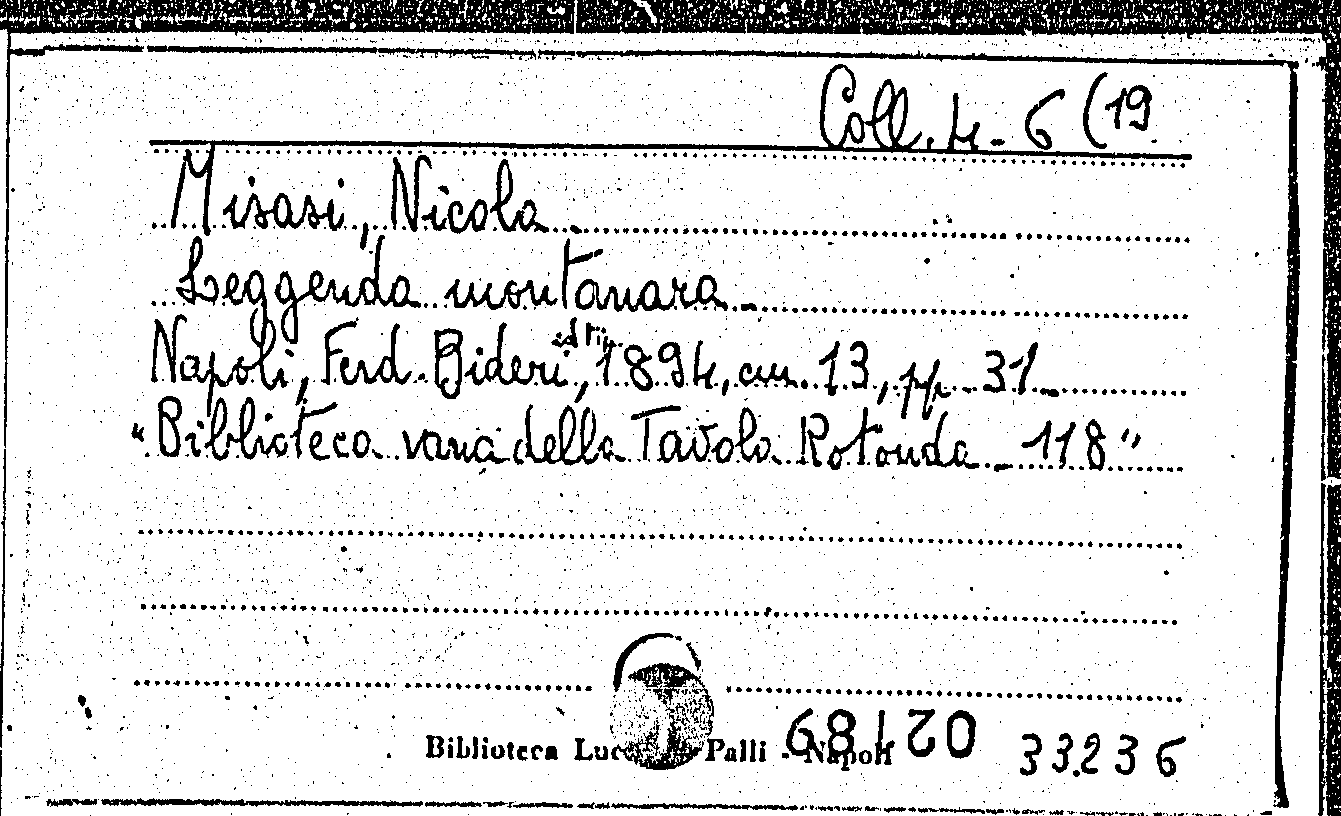 Coll. 4. 6 (19
Misasi, Nicola
Leggenda montanara.
Napoli, Ferd. Bideri, edit. 1894, cm. 13, pp. 31.
"Biblioteca varia della Tavola Rotonda - 118"
Biblioteca Palli - Napoli 02189 33.236